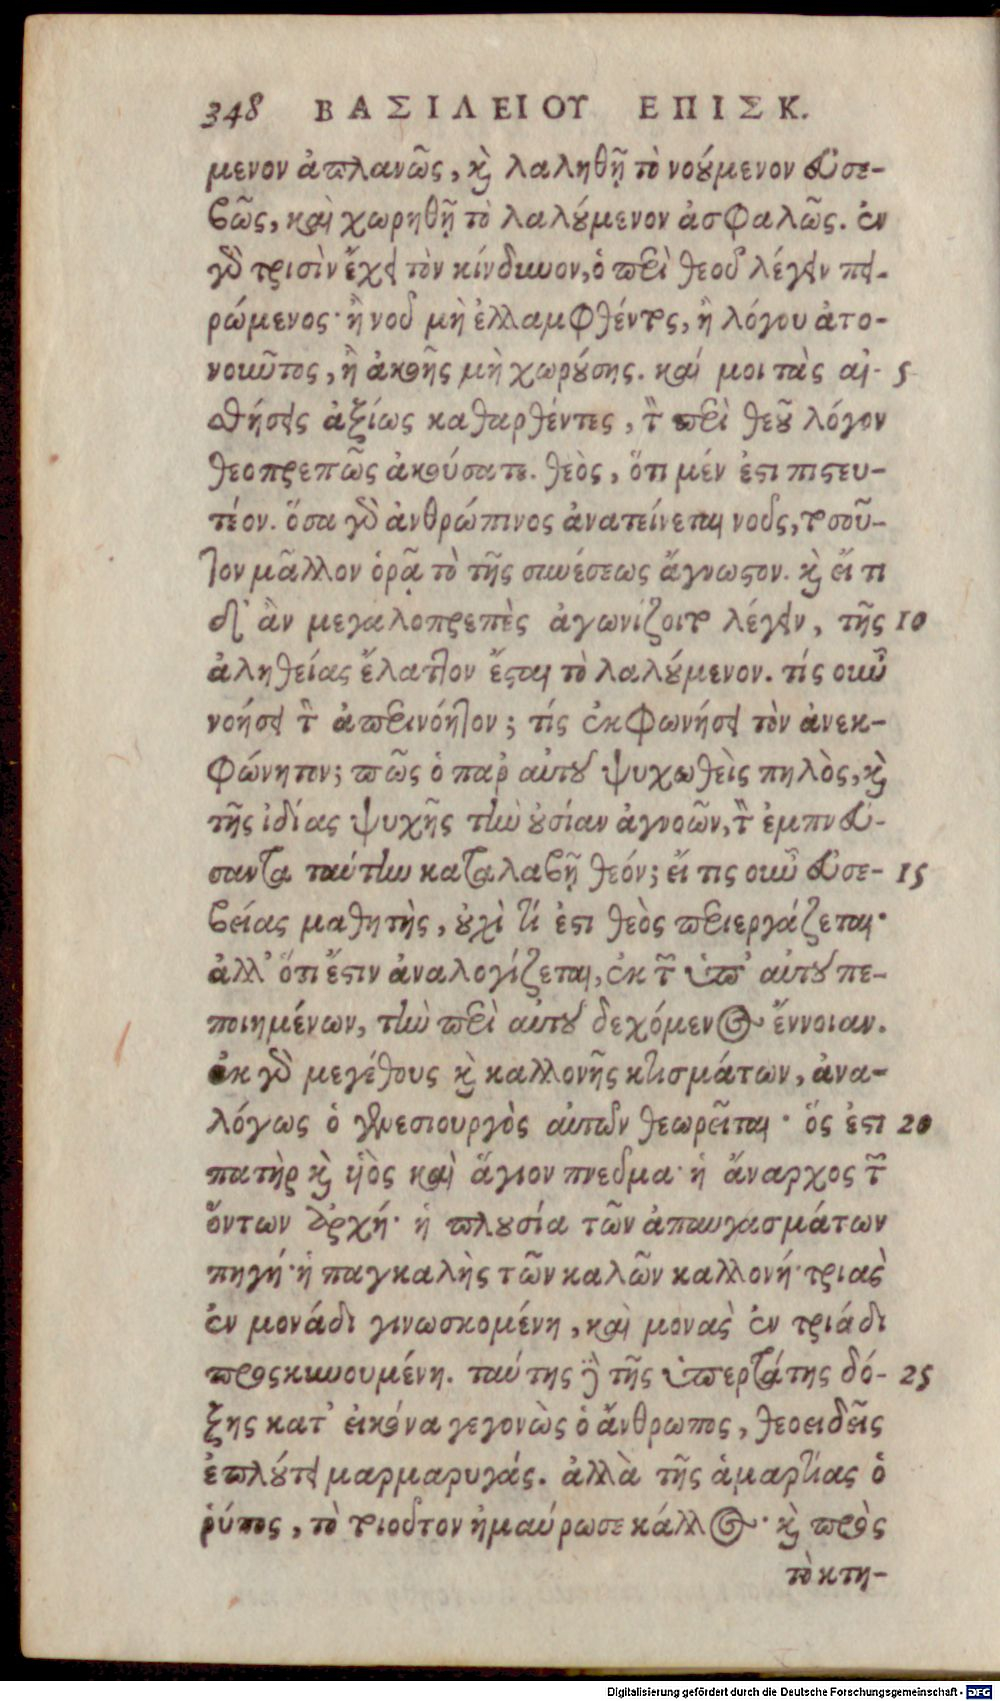 348 ΒΑΣΙΛΕΙΟΥ ΕΠΙΣΚ.
μενον ἀπλανῶς, καὶ λαληθῇ τὸ νούμενον εὐσε-
βῶς, καὶ χωρηθῇ τὸ λαλούμενον ἀσφαλῶς. ἐν
γὰρ τρισὶν ἔχει τὸν κίνδυνον, ὁ περὶ θεοῦ λέγειν πει-
ρώμενος· ἢ νοῦ μὴ ἐλλαμφθέντος, ἢ λόγου ἀτο-
νοῦντος, ἢ ἀκοῆς μὴ χωρούσης. καί μοι τὰς αἰ- 5
σθήσεις ἀξίως καθαρθέντες, τὸν περὶ θεοῦ λόγον
θεοπρεπῶς ἀκούσατε. θεὸς, ὅτι μέν ἐστι πιστευ-
τέον. ὅσα γὰρ ἀνθρώπινος ἀνατείνεται νοῦς, τοσοῦ-
τον μᾶλλον ὁρᾷ τὸ τῆς συνέσεως ἄγνωστον. καὶ εἴ τι
δ' ἂν μεγαλοπρεπὲς ἀγωνίζοιτο λέγειν, τῆς 10
ἀληθείας ἔλαττον ἔσται τὸ λαλούμενον. τίς οὖν
νοήσει τὸν ἀπερινόητον; τίς ἐκφωνήσει τὸν ἀνεκ-
φώνητον; πῶς ὁ παρ' αὐτοῦ ψυχωθεὶς πηλὸς, καὶ
τῆς ἰδίας ψυχῆς τὴν οὐσίαν ἀγνοῶν, τὸν ἐμπνεύ-
σαντα ταύτην καταλαβῇ θεόν; εἴ τις οὖν εὐσε- 15
βείας μαθητὴς, οὐχὶ τί ἐστι θεὸς περιεργάζεται·
ἀλλ' ὅτι ἔστιν ἀναλογίζεται, ἐκ τῶν ὑπ' αὐτοῦ πε-
ποιημένων, τὴν περὶ αὐτοῦ δεχόμενος ἔννοιαν.
ἐκ γὰρ μεγέθους καὶ καλλονῆς κτισμάτων, ἀνα-
λόγως ὁ γενεσιουργὸς αὐτῶν θεωρεῖται· ὅς ἐστι 20
πατὴρ καὶ υἱὸς καὶ ἅγιον πνεῦμα· ἡ ἄναρχος τῶν
ὄντων ἀρχή· ἡ πλουσία τῶν ἀπαυγασμάτων
πηγή· ἡ παγκαλὴς τῶν καλῶν καλλονή· τριὰς
ἐν μονάδι γινωσκομένη, καὶ μονὰς ἐν τριάδι
προσκυνουμένη. ταύτης γὰρ τῆς ὑπερτάτης δό- 25
ξης κατ' εἰκόνα γεγονὼς ὁ ἄνθρωπος, θεοειδεῖς
ἐπλούτει μαρμαρυγάς. ἀλλὰ τῆς ἁμαρτίας ὁ
ῥύπος, τὸ τοιοῦτον ἠμαύρωσε κάλλος· καὶ πρὸς
τὸ κτη-
Digitalisierung gefördert durch die Deutsche Forschungsgemeinschaft - DFG